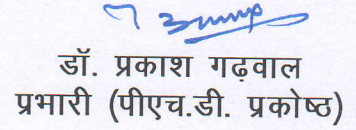 डॉ. प्रकाश गढ़वाल
प्रभारी (पीएच.डी. प्रकोष्ठ)